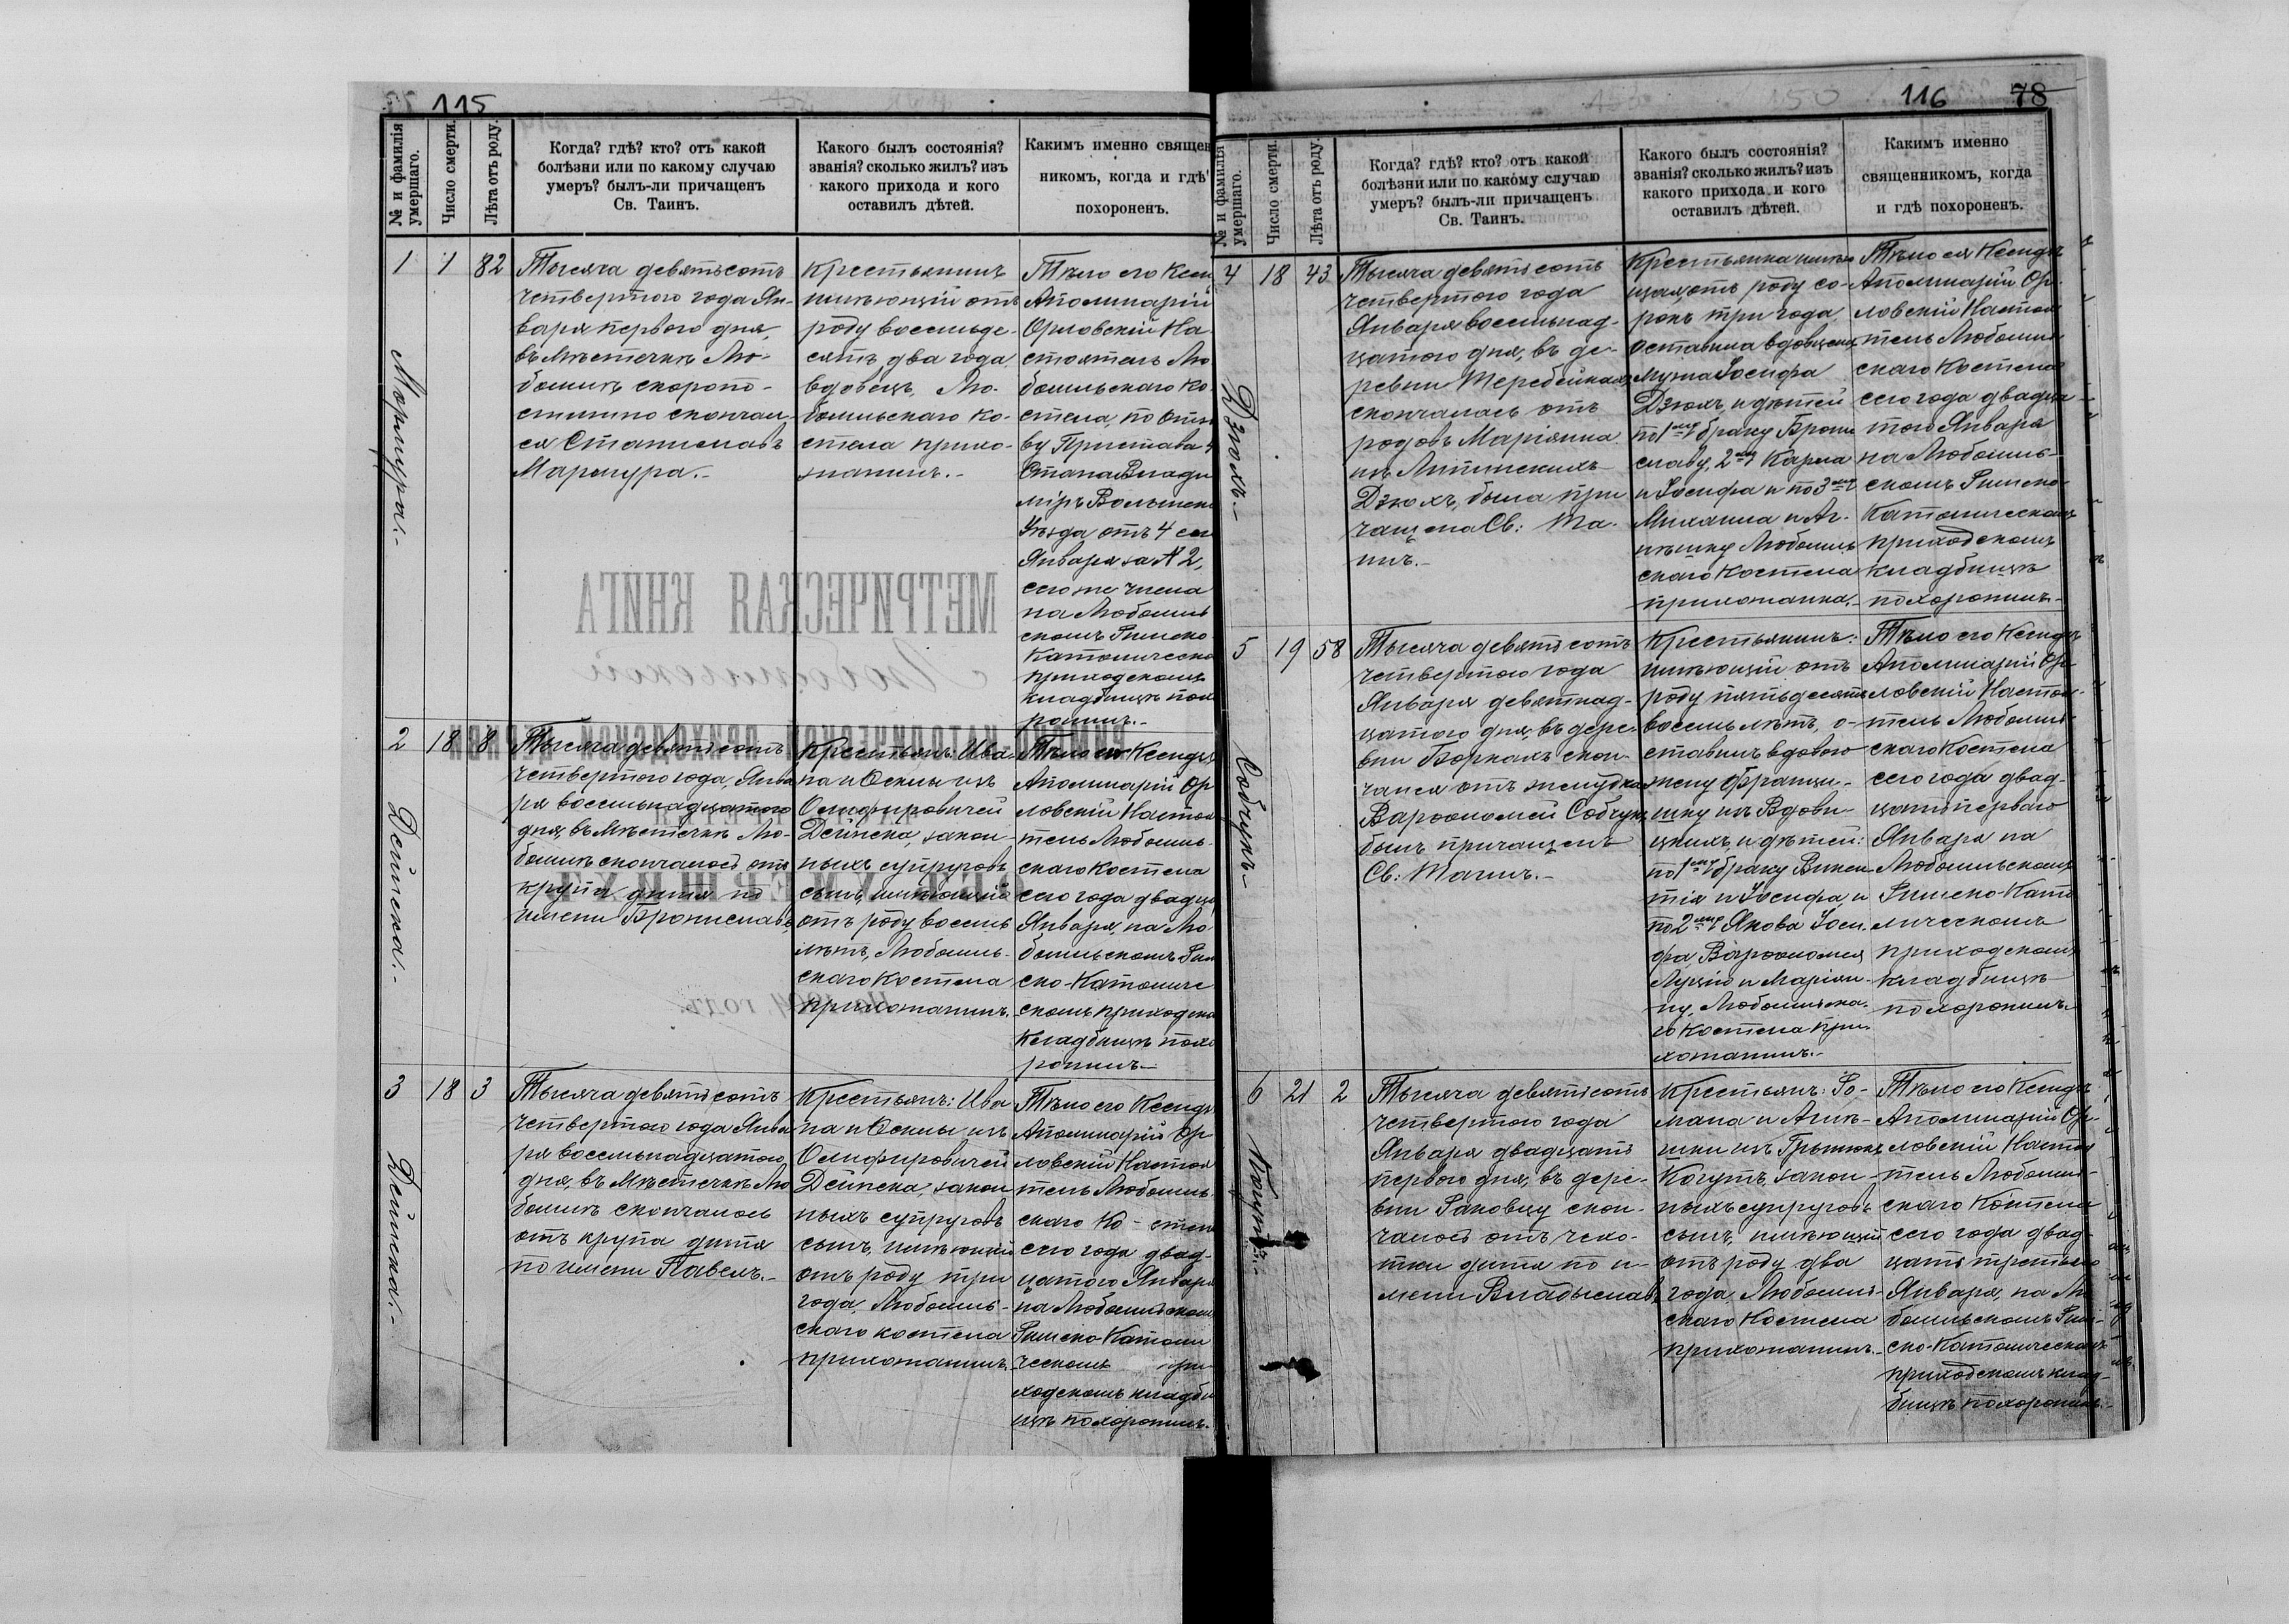 115
№ и фамилія умершаго.
Число смерти.
Лѣта отъ роду.
Когда? гдѣ? кто? отъ какой
болѣзни или по какому случаю
умеръ? былъ-ли причащенъ
Св. Таинъ.
Какого былъ состоянія?
званія? сколько жилъ? изъ
какого прихода и кого
оставилъ дѣтей.
Какимъ именно священ
никомъ, когда и гдѣ
похороненъ.
1
1
82
Тысяча девятьсотъ
четвертого года Ян-
варя первого дня,
въ мѣстечкѣ Лю-
бомлѣ скоропо-
стижно скончал-
ся Станиславъ
Мармура.-
Крестьянинъ
имѣющій отъ
роду восемьде-
сятъ два года
вдовецъ, Лю-
бомльскаго ко-
стела прихо-
жанинъ.-
Тѣло его Ксен
Аполинарій
Орловскій На-
стоятель Лю
бомльскаго Ко
стела, по отзы
ву Пристава 4
Стана Влади
мiръ Волынск
Уѣзда отъ 4 сег
Января за № 2,
сего же числа
на Любомль
скомъ Римско
Католическо
приходскомъ
кладбищѣ пох
ронилъ.-
Мармура.-
2
18
8
Тысяча девятьсотъ
четвертого года, Янва
ря восемьнадцатого
дня, въ мѣстечкѣ Лю-
бомлѣ скончалось отъ
крупа дитя по
имени Брониславъ,
Крестьянъ: Ива-
на и Оскны изъ
Онифировичей
Дейнека, закон-
ныхъ супруговъ
сынъ, имѣющій
отъ роду восемь
лѣтъ, Любомль-
скаго Костела
прихожанинъ.
Тѣло его Ксендзъ
Аполинарій Ор
ловскій Настоя
тель Любомль-
скаго Костела
сего года двадца
Января, на Лю
бомльскомъ Рим
ско-Католиче
скомъ приходско
Кладбищѣ похо
ронилъ.-
Дейнека.-
3
18
3
Тысяча девятьсотъ
четвертого года Янва
ря восемьнадцатого
дня, въ Мѣстечкѣ Лю
бомлѣ скончалось
отъ крупа дитя
по имени Павелъ.-
Крестьянъ: Ива
на и Оскны изъ
Онифировичей
Дейнека, закон
ныхъ супруговъ
сынъ, имѣющій
отъ роду три
года, Любомль-
скаго костела
прихожанинъ.-
Тѣло его Ксендзъ
Аполинарій Ор
ловскій Настоя
тель Любомль
скаго Ко-стел
сего года двад-
цатого Января
на Любомльском
Римско-Католи
ческомъ при
ходскомъ кладби
щѣ похоронилъ.
Дейнека.-
МЕТРИЧЕСКАЯ КНИГА
116
78
№ и фамилія умершаго.
Число смерти.
Лѣта отъ роду.
Когда? гдѣ? кто? отъ какой
болѣзни или по какому случаю
умеръ? былъ-ли причащенъ
Св. Таинъ.
Какого былъ состоянія?
званія? сколько жилъ? изъ
какого прихода и кого
оставилъ дѣтей.
Какимъ именно
священникомъ, когда
и гдѣ похороненъ.
4
18
43
Тысяча девятьсотъ
четвертого года
Января восемьнад-
цатого дня, въ де-
ревни Теребейкахъ
скончалась отъ
родовъ Маріянна
изъ Литинскихъ
Дзюхъ, была при
чащена Св: Та-
инъ.-
Крестьянка имѣю
щая отъ роду со-
рокъ три года
оставила вдовцемъ
мужа Іосифа
Дзюхъ и дѣтей
по 1му браку Брони
славу, 2му Карла
и Іосифа и по 3му
Михаила и Аг-
нѣшку Любомль
скаго Костела
прихожанка.-
Тѣло ея Ксендзъ
Аполинарій Ор-
ловскій Настоя
тель Любомль
скаго Костела
сего года двадца
того Января
на Любомль-
скомъ Римско
Католическомъ
приходскомъ
кладбищѣ
похоронилъ.-
Дзюхъ.-
5
19
58
Тысяча девятьсотъ
четвертого года
Января девятнад-
цатого дня, въ дере-
вни Боркахъ скон-
чался отъ желудка
Варѳоломей Собчукъ
былъ причащенъ
Св: Таинъ.-
Крестьянинъ:
имѣющій отъ
роду пятьдесятъ
восемь лѣтъ, о-
ставилъ вдового
жену Франци-
шку изъ Вдови-
цкихъ, и дѣтей:
по 1му браку Викен
тія и Іосифа, и
по 2му Якова Іоси-
фа Варѳоломея
Луцію и Маріян-
ну, Любомльска-
го Костела при-
хожанинъ.-
Тѣло его Ксендзъ
Аполинарій Ор
ловскій Настоя-
тель Любомль
скаго Костела
сего года двад-
цать перваго
Января на
Любомльскомъ
Римско-Като
лическомъ
приходскомъ
кладбищѣ
похоронилъ.
Собчукъ.-
6
21
2
Тысяча девятьсотъ
четвертого года
Января двадцать
первого дня, въ дере-
вни Раковцу скон-
чалось отъ чехо-
тки дитя по и-
мени Владыславъ,
Крестьянъ: Ро-
мана и Агнѣ-
шки изъ Грынюкъ
Когутъ, закон-
ныхъ супруговъ
сынъ, имѣющій
отъ роду два
года Любомль-
скаго Костела
прихожанинъ.-
Тѣло его Ксендзъ
Аполинарій Ор-
ловскій Настоя
тель Любомль-
скаго Костела
сего года двад-
цать третьяго
Января, на Лю
бомльскомъ Рим-
ско-Католическомъ
приходскомъ клад-
бищѣ похоронилъ.-
Когутъ.-